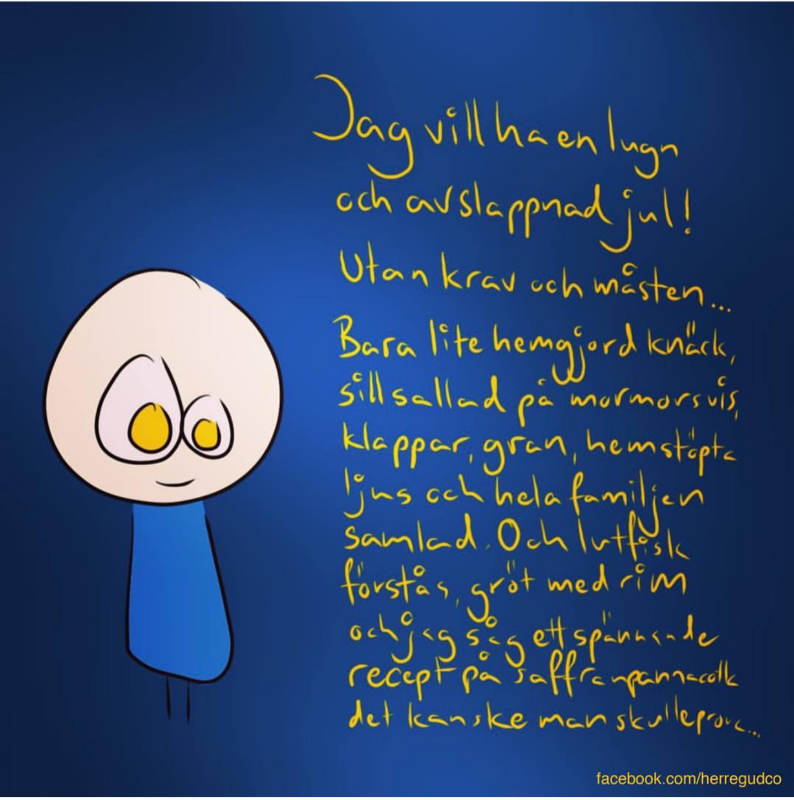 Jag vill ha en lugn
och avslappnad jul!
Utan krav och måsten...
Bara lite hemgjord knäck,
sillsallad på mormorsvis,
klappar, gran, hemstöpta
ljus och hela familjen
samlad. Och lutfisk
förstås, gröt med rim
och jag såg ett spännande
recept på saffranpannacotta
det kanske man skulle prova...
facebook.com/herregudco